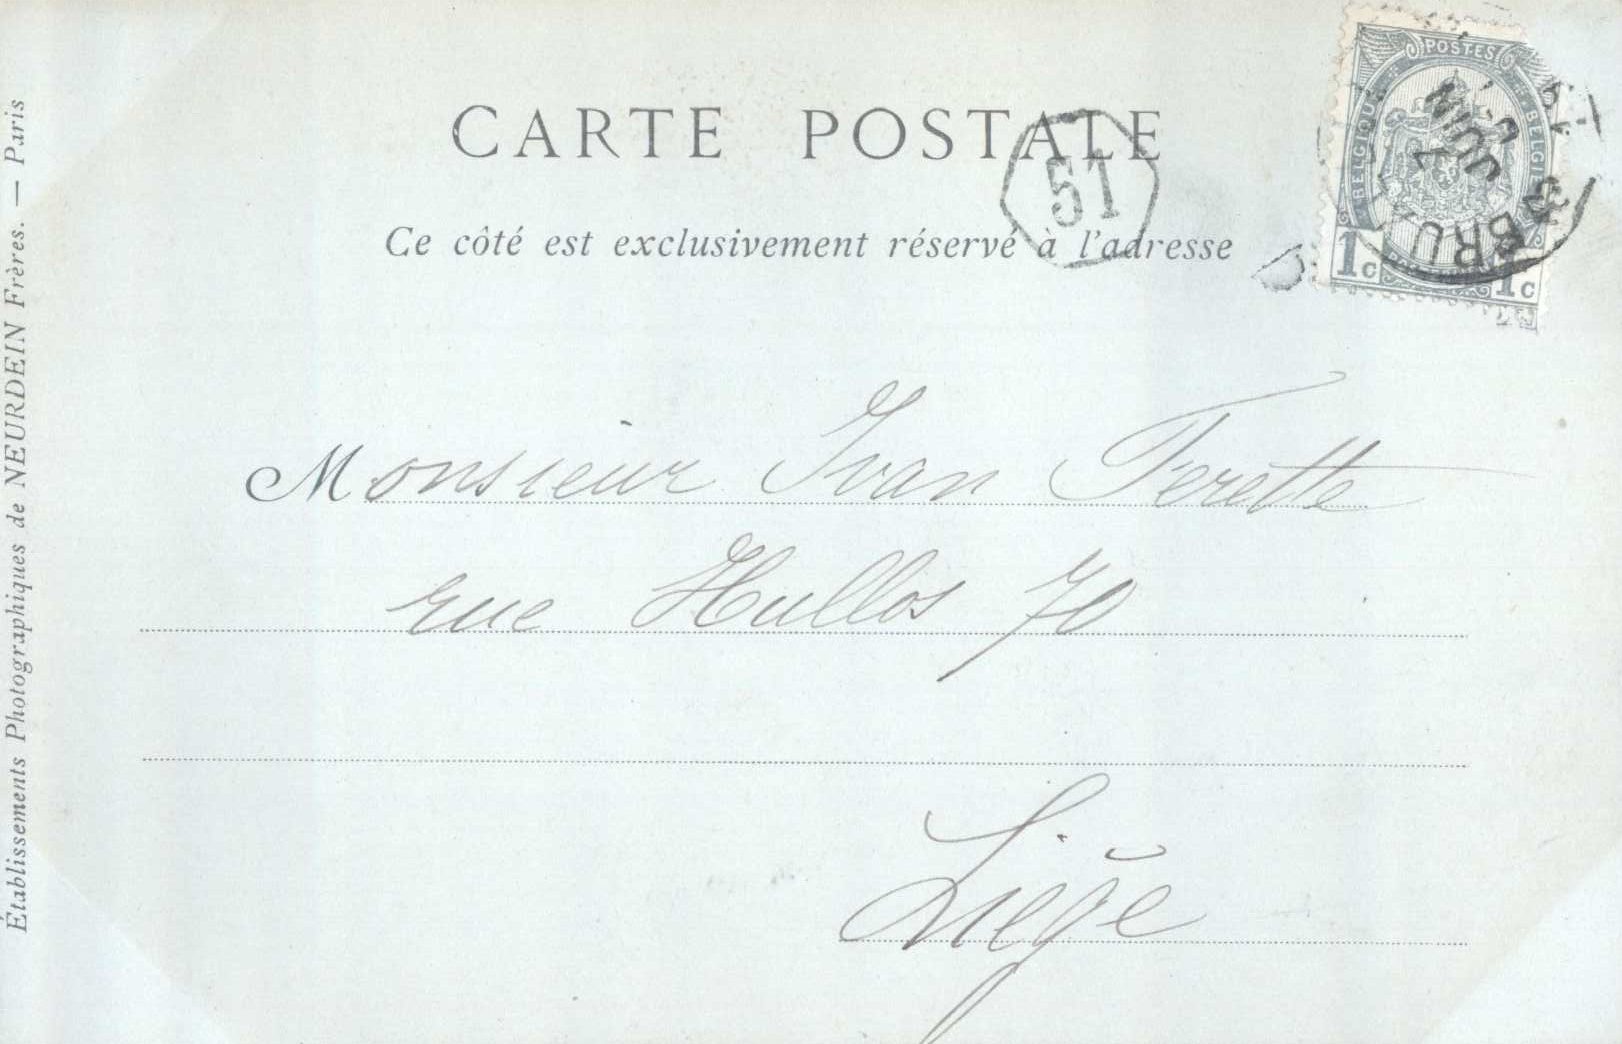 CARTE POSTALE
Ce côté est exclusivement réservé à l'adresse
51
POSTES
BELGIQUE
BELGIË
1c
1c
JUIN
Monsieur Ivan Ferette
rue Hullos 70
Liége
Établissements Photographiques de NEURDEIN Frères. — Paris